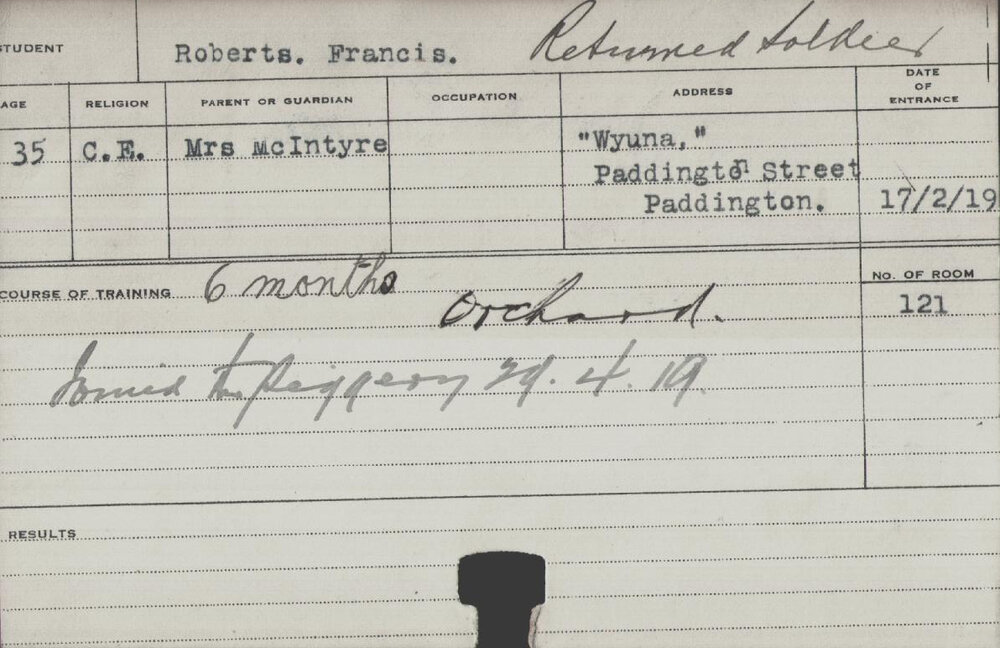 STUDENT Roberts. Francis. Returned Soldier
AGE RELIGION PARENT OR GUARDIAN OCCUPATION ADDRESS DATE OF ENTRANCE
35 C.E. Mrs McIntyre "Wyuna,"
Paddington Street
Paddington. 17/2/19
COURSE OF TRAINING 6 months No. OF ROOM
Orchard. 121
Joined Piggery 29.4.19.
RESULTS